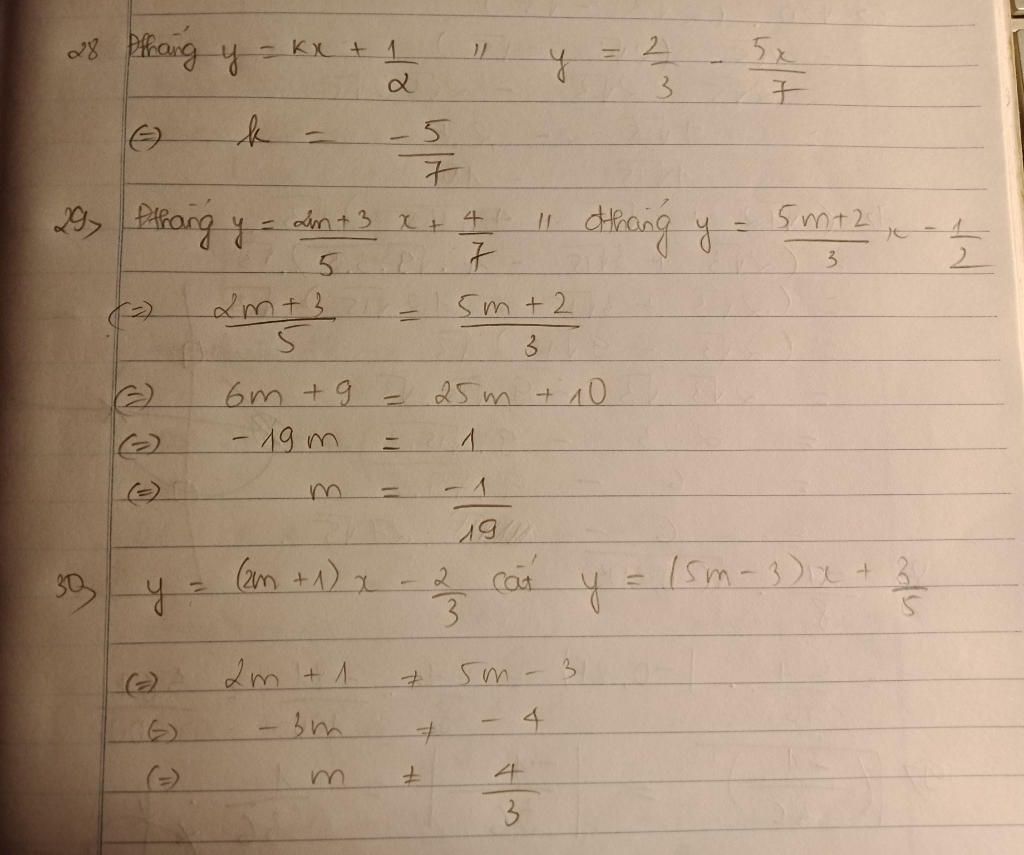 28 Đthẳng y = kx + 1/2 // y = 2/3 - 5x/7
(=) k = -5/7
29> Đthẳng y = 2m+3/5 x + 4/7 // đthẳng y = 5m+2/3 x - 1/2
(=) 2m+3/5 = 5m+2/3
(=) 6m + 9 = 25m + 10
(=) -19m = 1
(=) m = -1/19
30> y = (2m+1)x - 2/3 cắt y = (5m-3)x + 3/5
(=) 2m + 1 ≠ 5m - 3
(=) -3m ≠ -4
(=) m ≠ 4/3